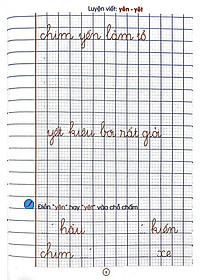 Luyện viết: yên - yêt
chim yến làm tổ
yết kiêu bơi rất giỏi
Điền "yên" hay "yêt" vào chỗ chấm
hầu ... kiến
chim ... xe